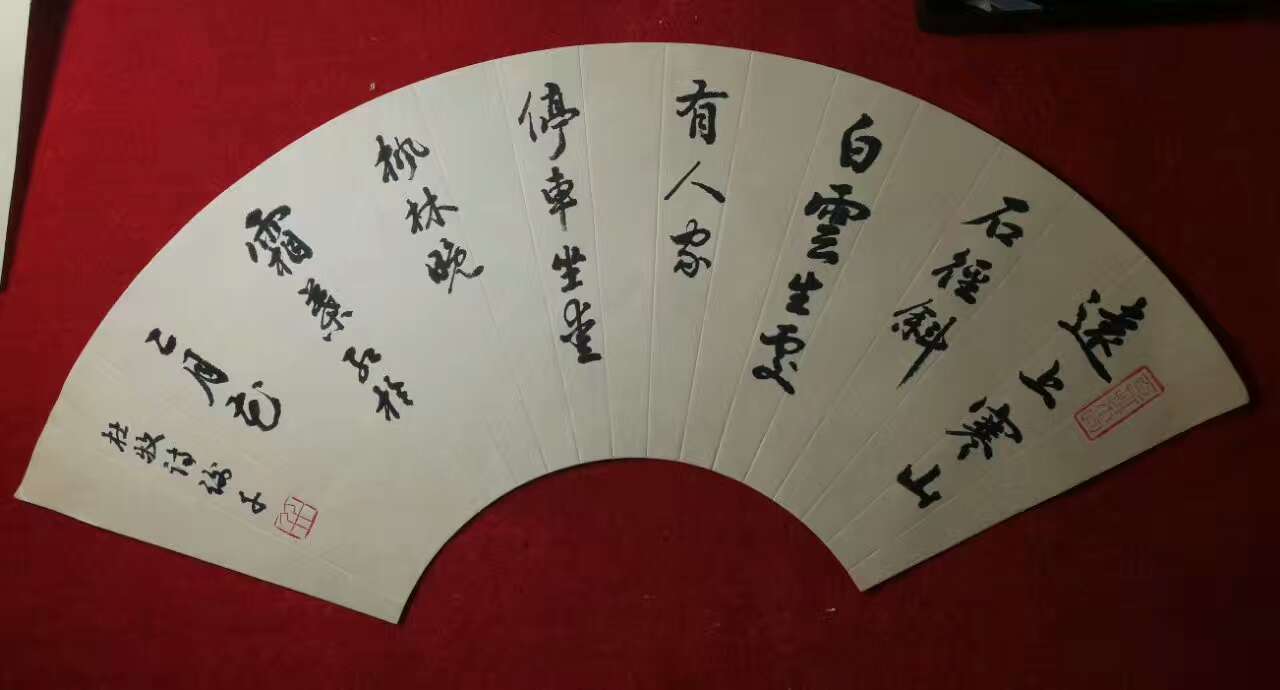 遠上寒山
石徑斜
白雲生處
有人家
停車坐愛
楓林晚
霜葉紅於
二月花
杜牧詩